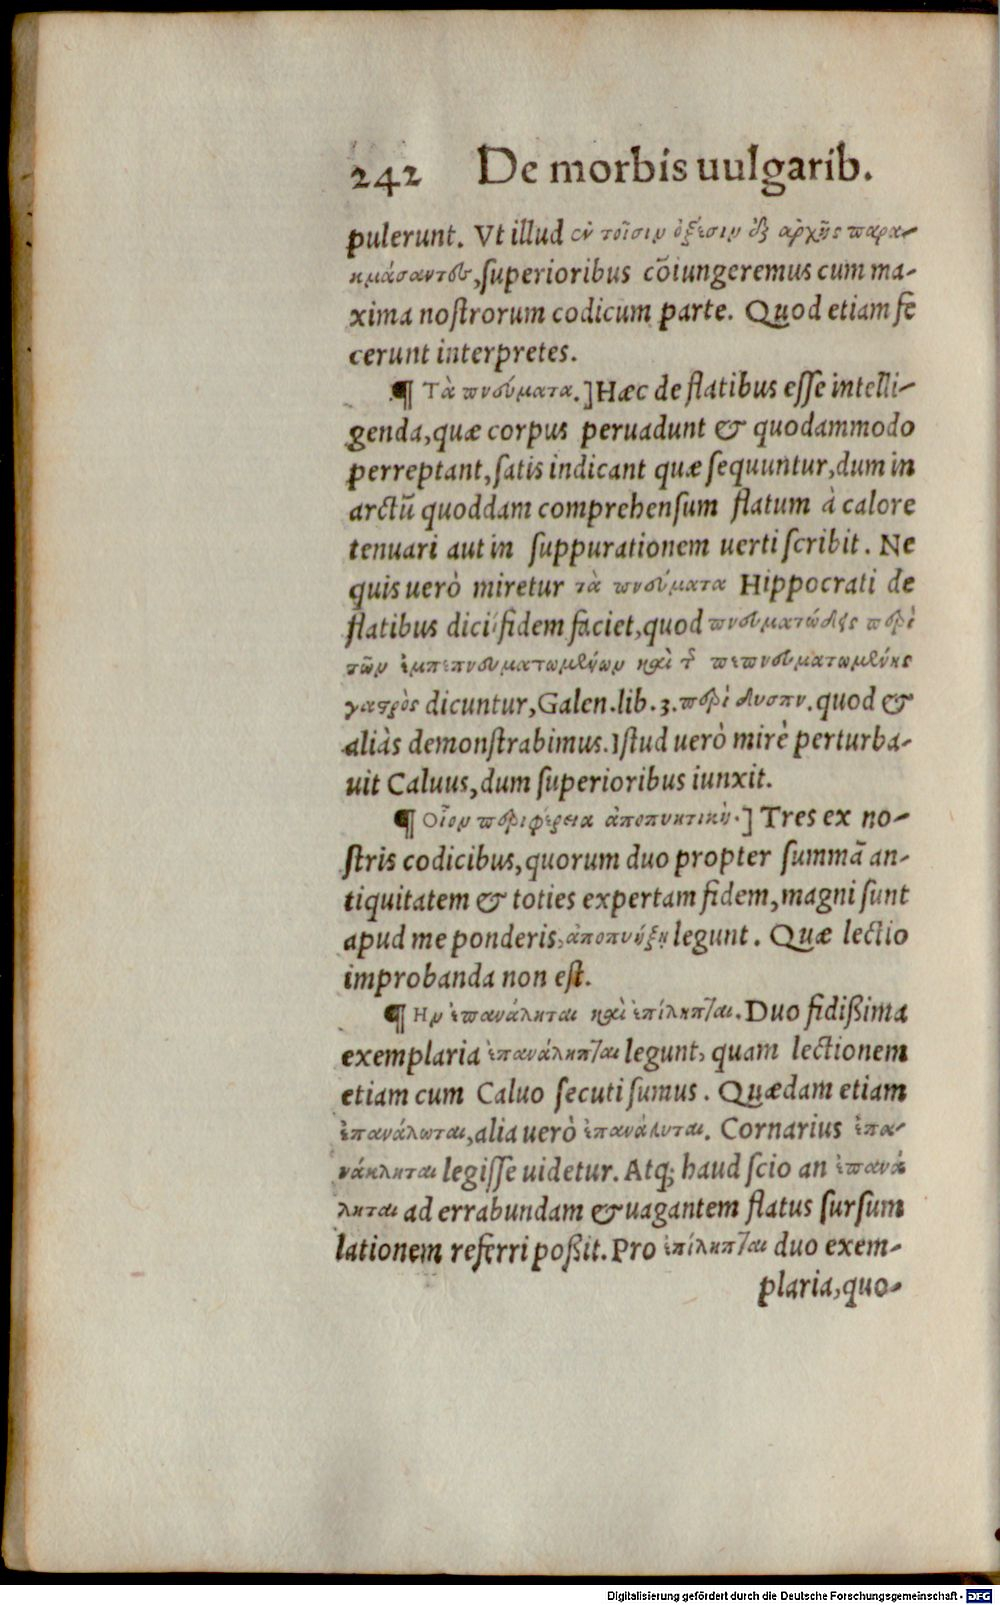 242 De morbis uulgarib.
pulerunt. Vt illud ἐν τοῖσιν ὀξέσιν ἐξ ἀρχῆς παρα-
κμάσαντος, superioribus cõiungeremus cum ma-
xima nostrorum codicum parte. Quod etiam fe
cerunt interpretes.
¶ Τὰ πνεύματα.] Hæc de flatibus esse intelli-
genda, quæ corpus peruadunt & quodammodo
perreptant, satis indicant quæ sequuntur, dum in
arctũ quoddam comprehensum flatum à calore
tenuari aut in suppurationem uerti scribit. Ne
quis uerò miretur τὰ πνεύματα Hippocrati de
flatibus dici: fidem faciet, quod πνευματώδης περὶ
τῶν ἐμπεπνευματωμένων καὶ τῆς πεπνευματωμένης
γαστρὸς dicuntur, Galen. lib. 3. περὶ δυσπν. quod &
aliàs demonstrabimus. Istud uerò mirè perturba-
uit Caluus, dum superioribus iunxit.
¶ Οἷον περιφέρεια ἀποπνκτικὴ.] Tres ex no-
stris codicibus, quorum duo propter summã an-
tiquitatem & toties expertam fidem, magni sunt
apud me ponderis, legunt. Quæ lectio
improbanda non est.
¶ Ην ἐπανάληται καὶ ἐπίληπται. Duo fidißima
exemplaria ἐπανάληπται legunt, quam lectionem
etiam cum Caluo secuti sumus. Quædam etiam
ἐπανάλωται, alia uerò ἐπανάλυται. Cornarius ἐπα-
νάκληται legisse uidetur. Atq; haud scio an ἐπανά
ληται ad errabundam & uagantem flatus sursum
lationem referri poßit. Pro ἐπίληπται duo exem-
plaria, quo-
Digitalisierung gefördert durch die Deutsche Forschungsgemeinschaft - DFG